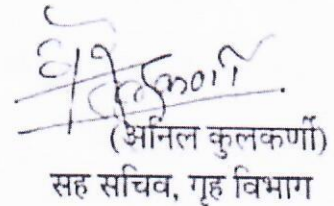 (अनिल कुलकर्णी)
सह सचिव, गृह विभाग